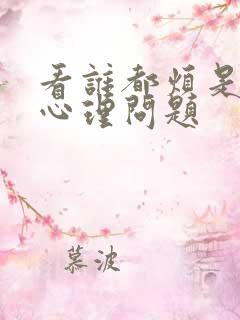 看誰都煩是
心理問題
慕波